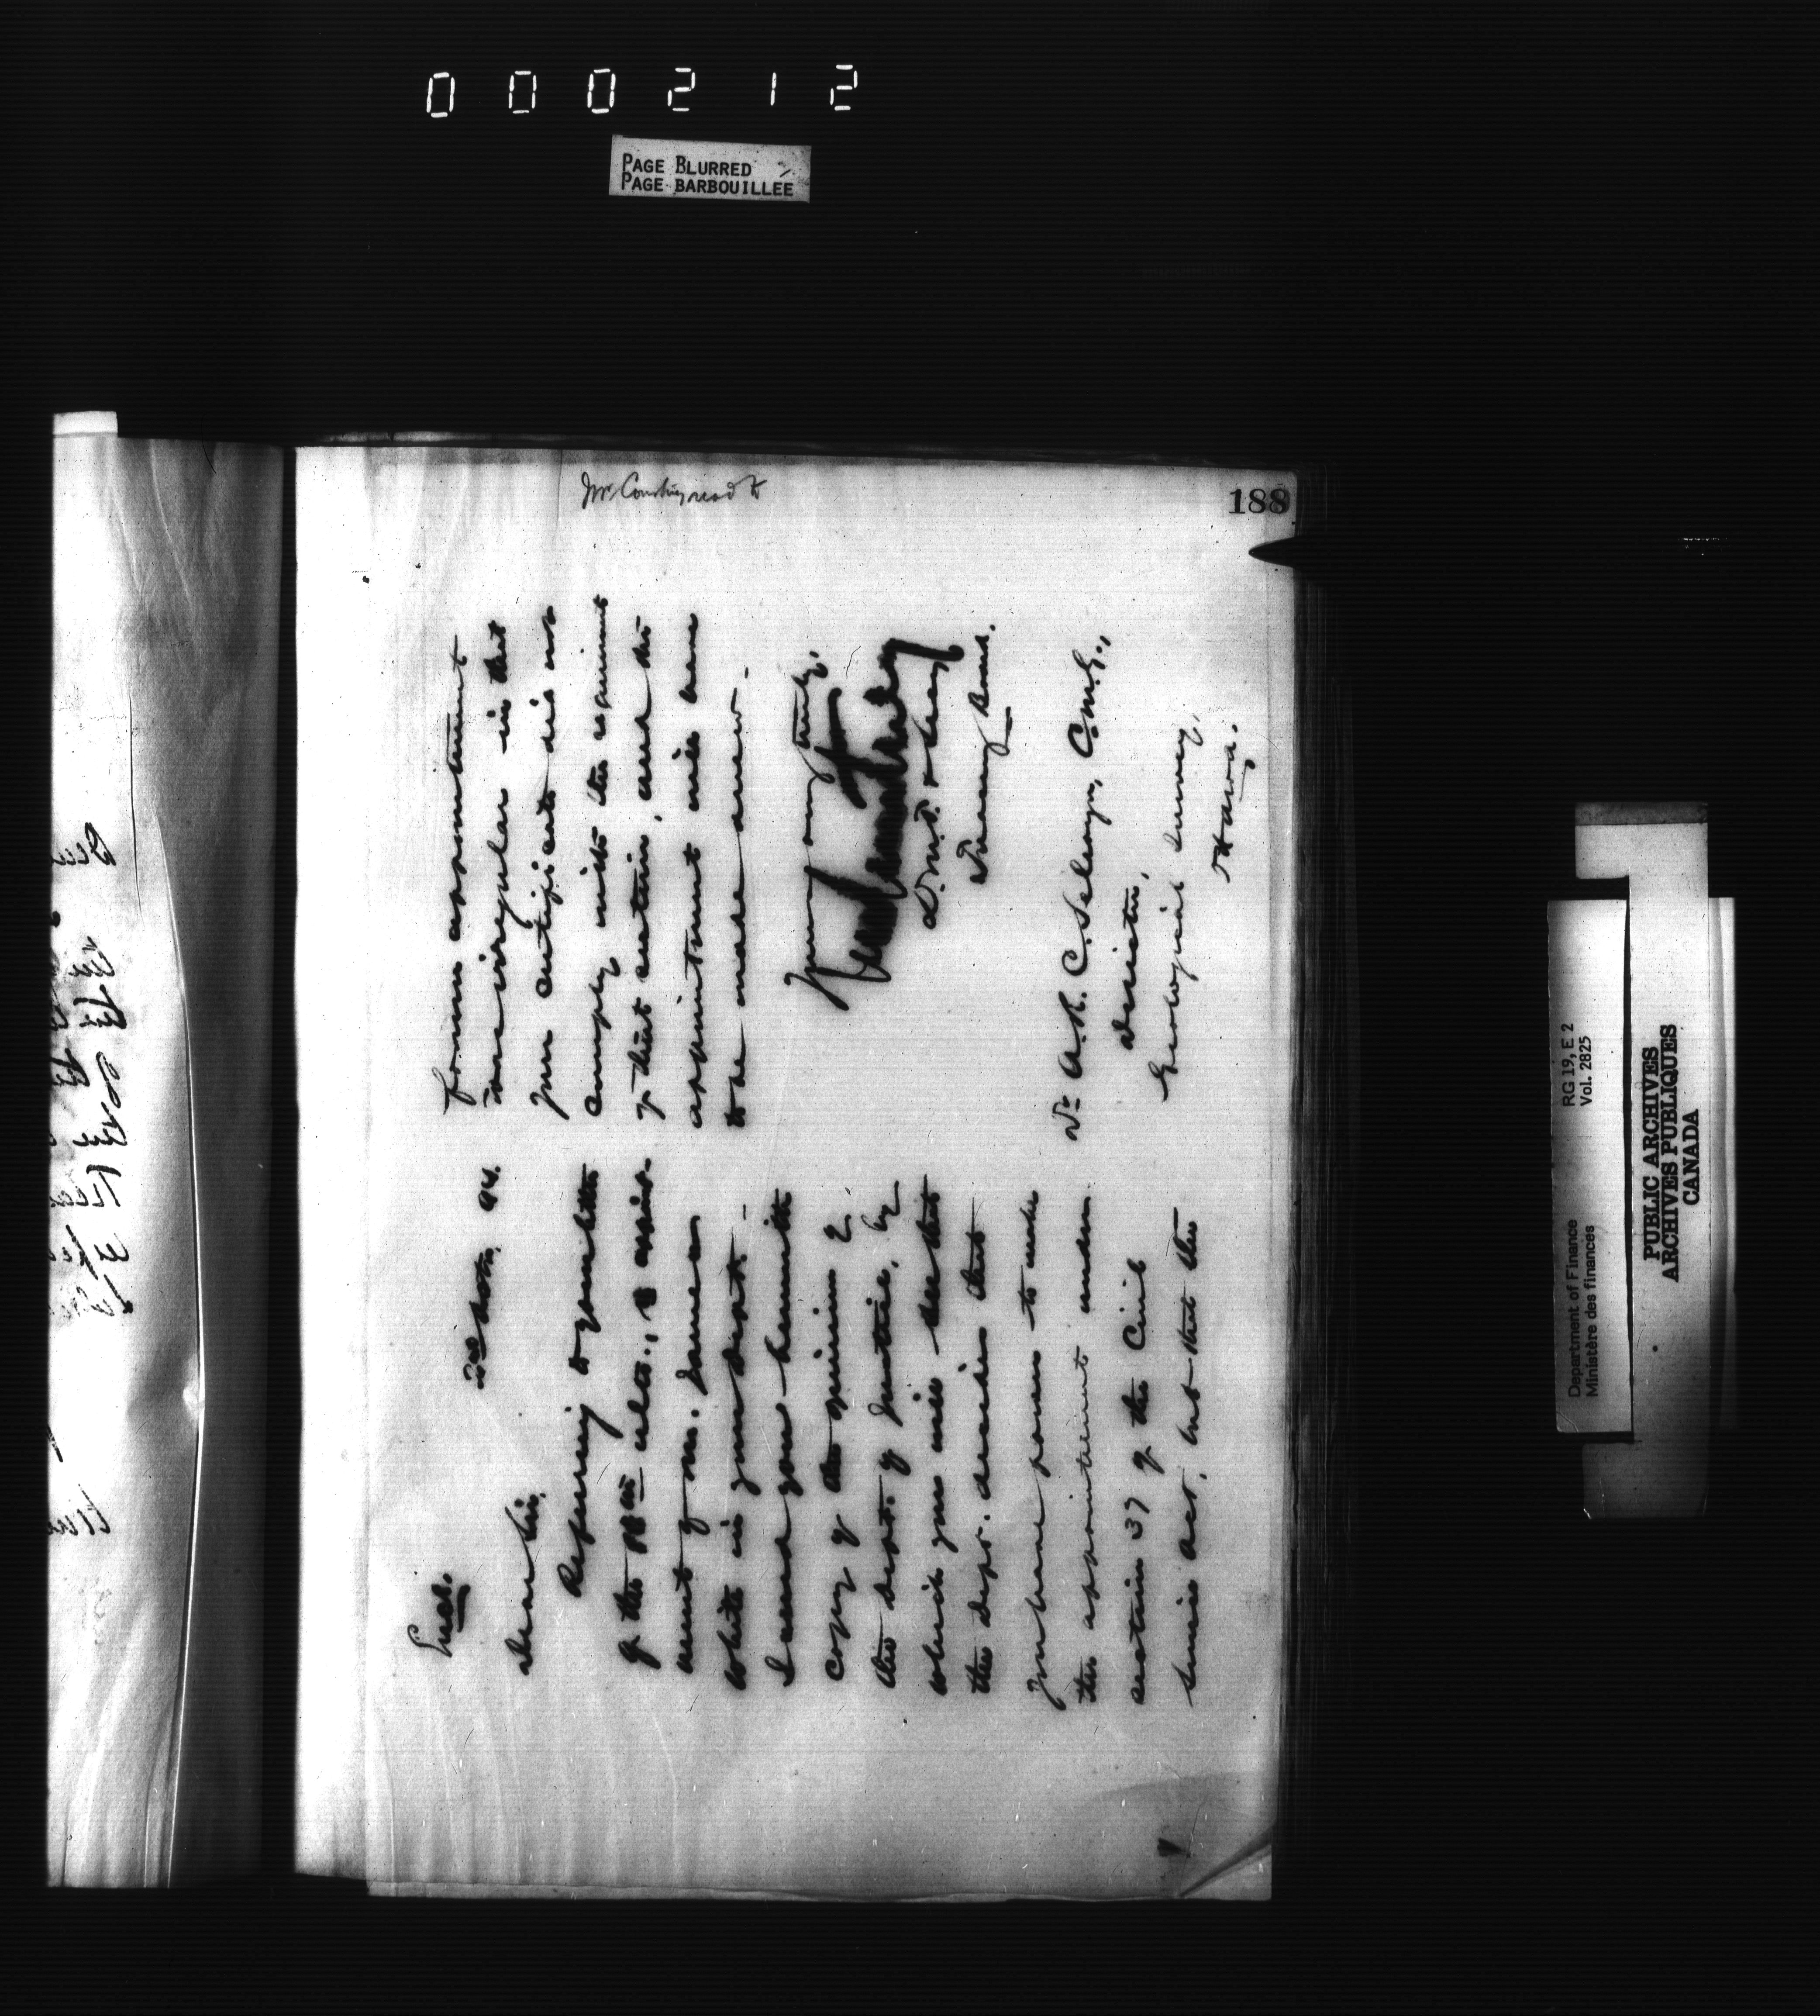 000212
PAGE BLURRED
PAGE BARBOUILLEE
188
Encl.
Octr. 94.
Dear Sir,
Referring to your letter
of the ulto., appoint-
ment of Mr. James
White in your Dept. -
I send you herewith
copy of an opinion of
the Dept. of Justice, by
which you will see that
the Dept. decides that
you have power to make
this appointment under
section 37 of the Civil
Service Act, but that the
former appointment
was irregular in that
your certificate did not
comply with the requirement
of that section, and the
appointment will have
to be made anew. -
Yours very truly,
D.M.F. & Secy
Treasury Board.
Dr. A.R.C. Selwyn, C.M.G.,
Director,
Geological Survey,
Ottawa.
Department of Finance RG 19, E 2
Ministère des finances Vol. 2825
PUBLIC ARCHIVES
ARCHIVES PUBLIQUES
CANADA